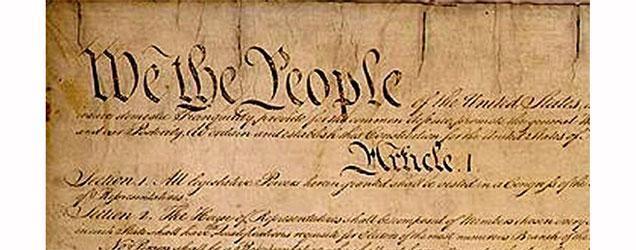 We the People of the United States,
insure domestic Tranquility, provide for the common defence, promote the general
and our Posterity, do ordain and establish this Constitution for the United States of
Article. I
Section. 1. All legislative Powers herein granted shall be vested in a Congress of the
of Representatives.
Section. 2. The House of Representatives shall be composed of Members chosen every
in each State shall have Qualifications requisite for Electors of the most numerous Branch of the
No Person shall be a Representative